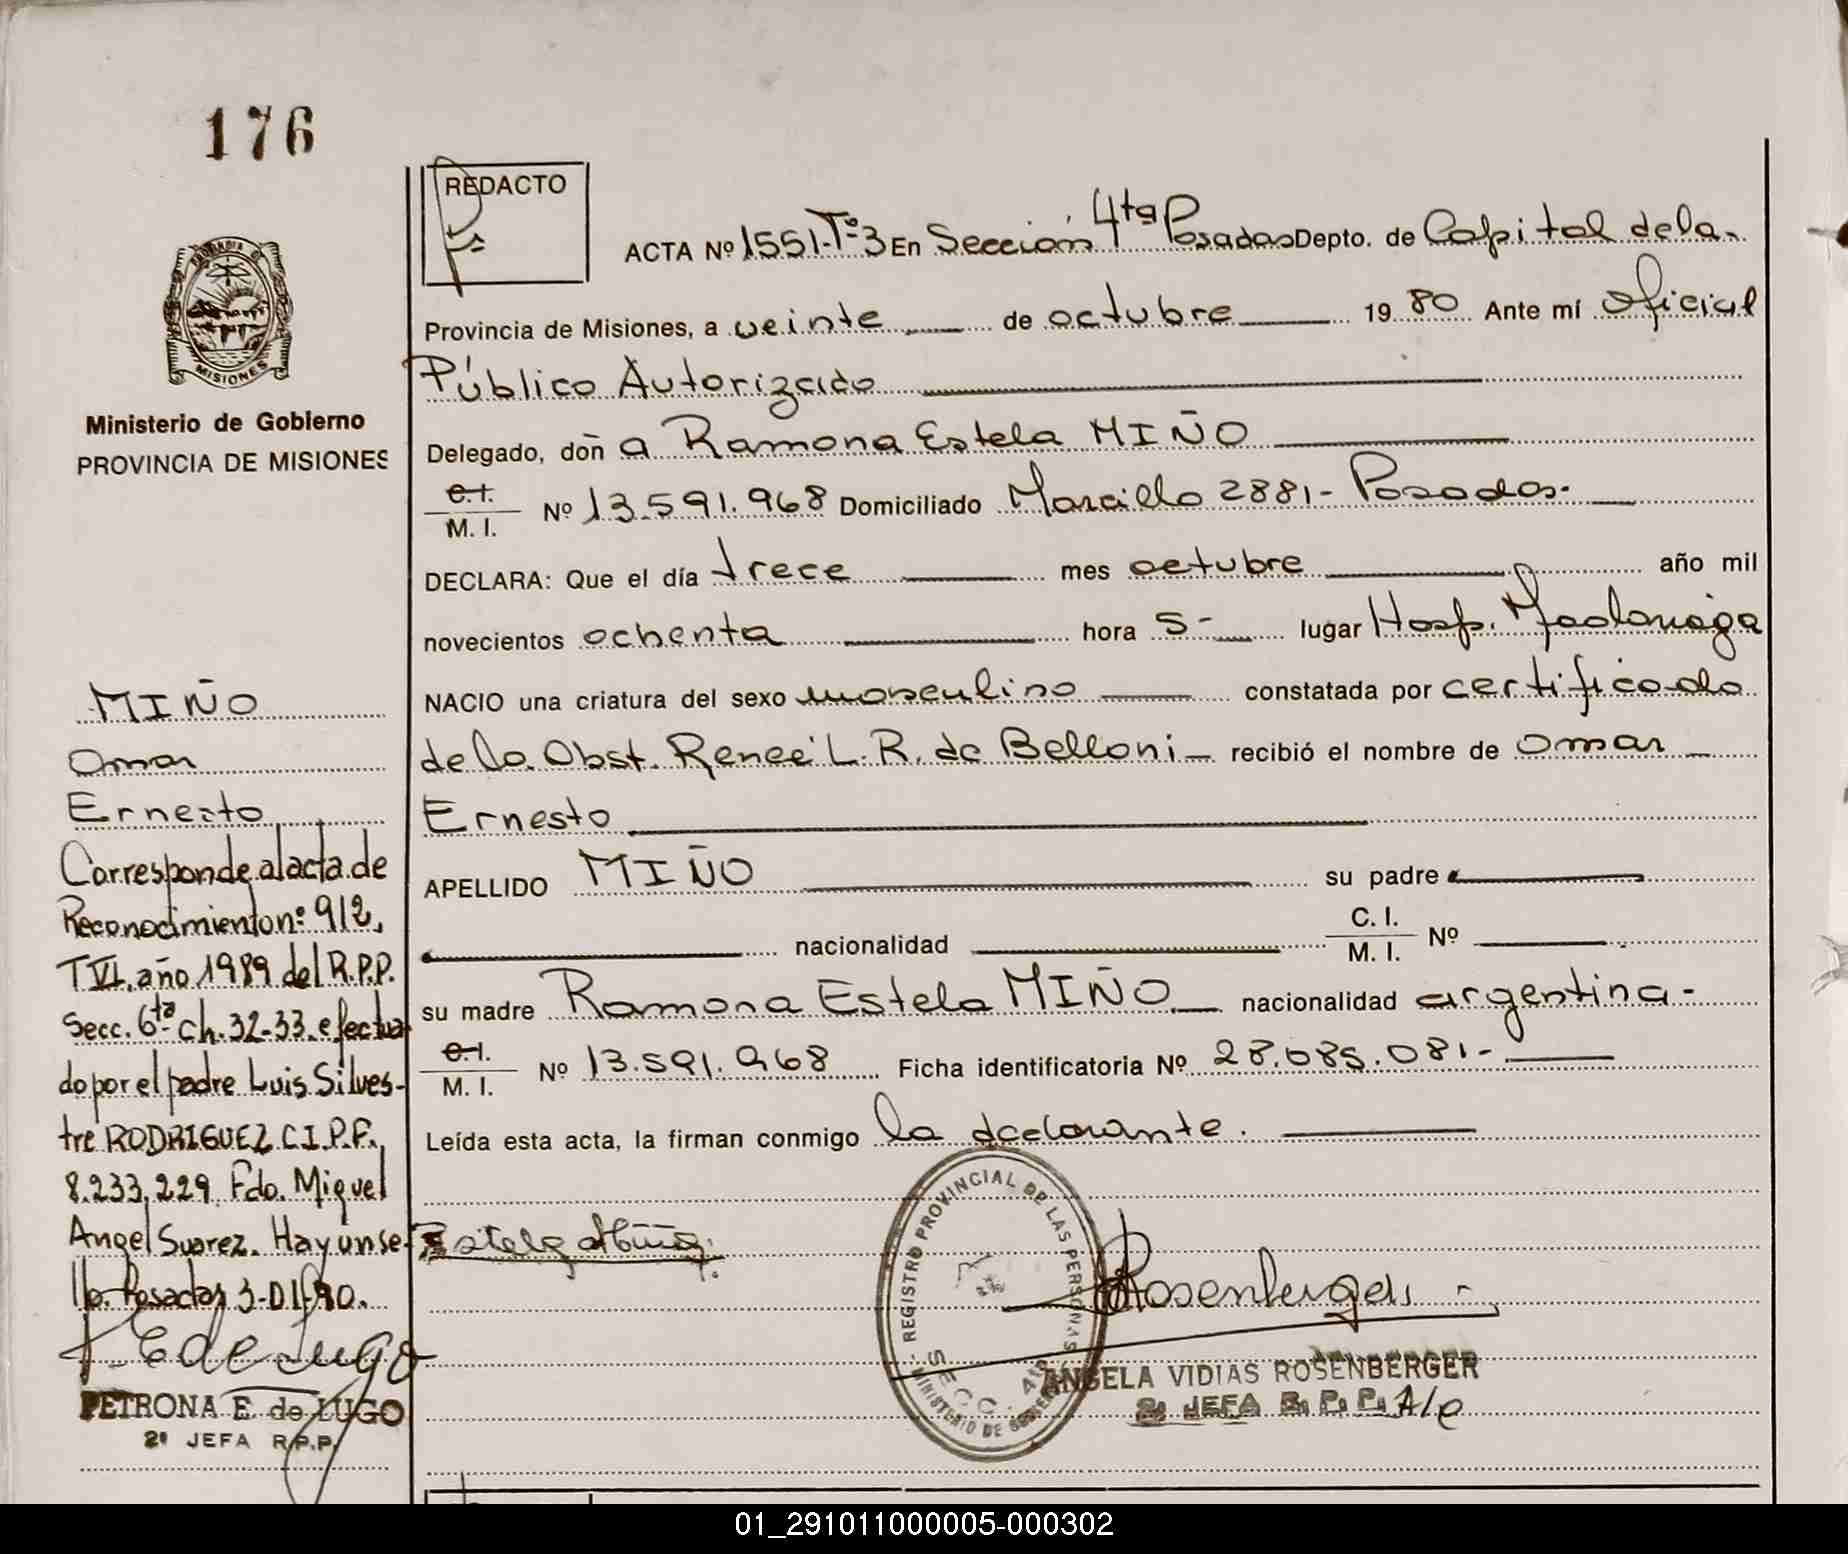 176
REDACTO
ACTA Nº 1551-Tº3 En Sección 4ta Posadas Depto. de Capital de la
Provincia de Misiones, a veinte de octubre 1980 Ante mí Oficial
Público Autorizado
MISIONES
Ministerio de Gobierno
PROVINCIA DE MISIONES
Delegado, doñ a Ramona Estela MIÑO
C.I.
M. I. Nº 13.591.968 Domiciliado Marcillo 2881- Posadas-
DECLARA: Que el día trece mes octubre año mil
novecientos ochenta hora 5- lugar Hosp. Madariaga
NACIO una criatura del sexo masculino constatada por certificado
de la Obst. Reneé L. R. de Belloni recibió el nombre de Omar
Ernesto
APELLIDO MIÑO su padre
nacionalidad C. I.
M. I. Nº
su madre Ramona Estela MIÑO nacionalidad argentina-
C.I.
M. I. Nº 13.591.968 Ficha identificatoria Nº 28.085.081-
Leída esta acta, la firman conmigo la declarante.
MIÑO
Omar
Ernesto
Corresponde al acta de
Reconocimiento nº 912,
T VI, año 1989 del R.P.P.
Secc. 6ta ch. 32-33. efectua
do por el padre Luis Silves-
tre RODRIGUEZ C.I.P.F.
8.233.229 Fdo. Miguel
Angel Suarez. Hay un se-
llo. Posadas 3-01-90.
E de Lugo
PETRONA E. de LUGO
2º JEFA R.P.P.
Estela Miño
REGISTRO PROVINCIAL DE LAS PERSONAS
MINISTERIO DE GOBIERNO
SECC. 4ta
Rosenberger
ANGELA VIDIAS ROSENBERGER
2º JEFA R. P. P. A/c
01_291011000005-000302